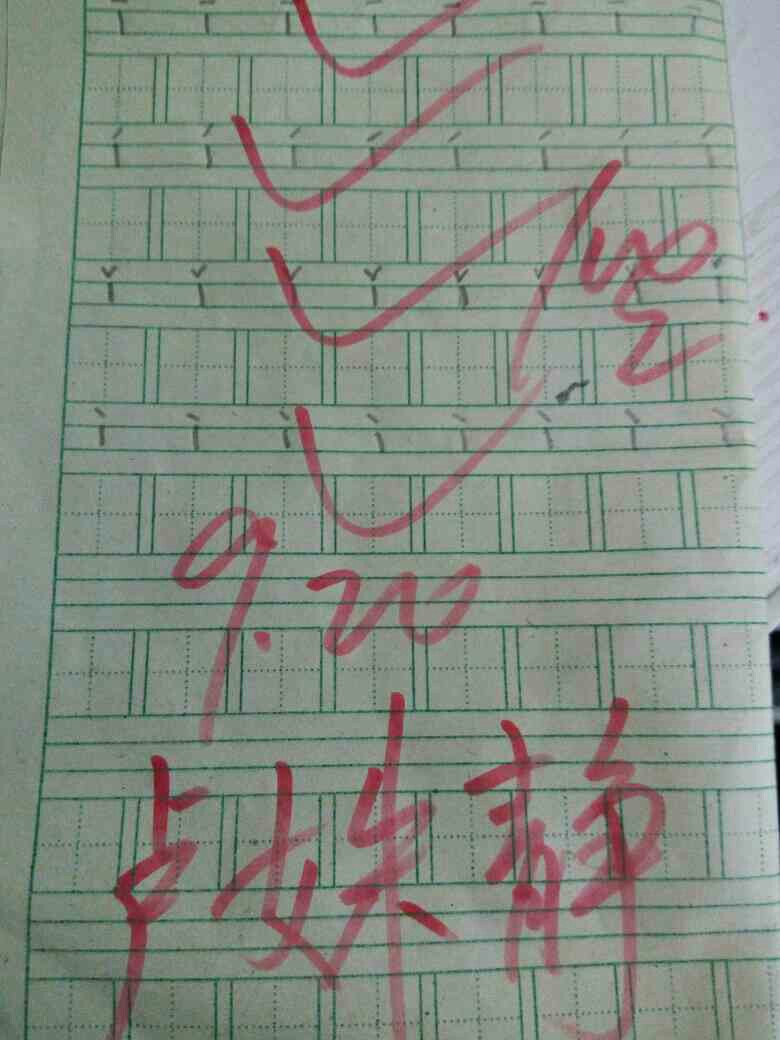 ī ī ī ī ī ī ī ī
í í í í í í í í
ǐ ǐ ǐ ǐ ǐ ǐ ǐ ǐ
ì ì ì ì ì ì ì ì
9.20
卢姝静